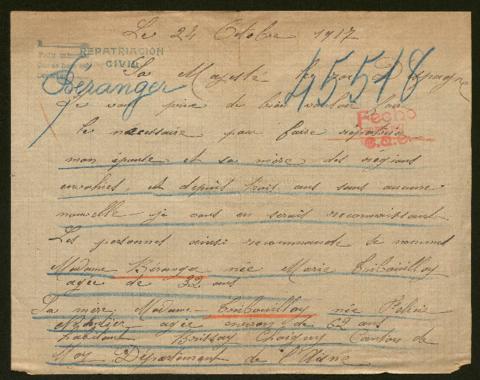 Le 24 Octobre 1917
REPATRIACION
CIVIL
Béranger
45518
Sa Majesté le roi d'Espagne
Je vous prie de bien vouloir
le nécessaire pour faire
Fecho
mon épouse et sa mère des régions
envahies, et depuis trois ans sans aucune
nouvelle je vous en serait reconnaissant
Les personnes ainsi recommandé se nomment
Madame Béranger née Marie Tribouilloy
agée de 32 ans
Sa mère Madame Tribouilloy née
agée environ de 62 ans
habitant Brissay Choigny Canton de
Moy Département de l'Aisne